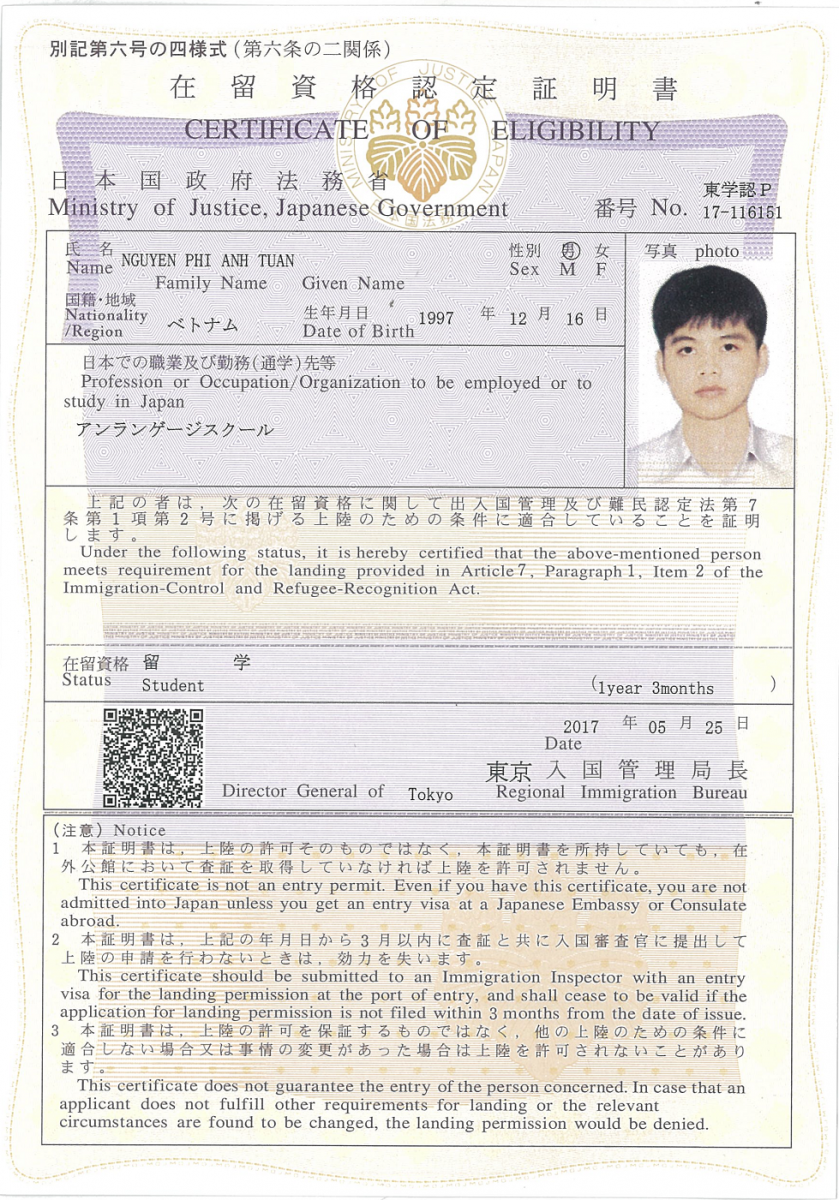 別記第六号の四様式(第六条の二関係)
在留資格認定証明書
CERTIFICATE OF ELIGIBILITY
MINISTRY OF JUSTICE JAPAN
日本国政府法務省
Ministry of Justice, Japanese Government
番号 No. 東学認P
17-116151
氏名
Name NGUYEN PHI ANH TUAN
Family Name Given Name
性別 男 女
Sex M F
写真 photo
国籍・地域
Nationality
/Region ベトナム
生年月日
Date of Birth 1997 年 12 月 16 日
日本での職業及び勤務(通学)先等
Profession or Occupation/Organization to be employed or to
study in Japan
アンランゲージスクール
上記の者は,次の在留資格に関して出入国管理及び難民認定法第7
条第1項第2号に掲げる上陸のための条件に適合していることを証明
します。
Under the following status, it is hereby certified that the above-mentioned person
meets requirement for the landing provided in Article 7, Paragraph 1, Item 2 of the
Immigration-Control and Refugee-Recognition Act.
在留資格 留学
Status Student
(1year 3months )
2017 年 05 月 25 日
Date
東京 入国管理局長
Director General of Tokyo Regional Immigration Bureau
(注意) Notice
1 本証明書は,上陸の許可そのものではなく,本証明書を所持していても,在
外公館において査証を取得していなければ上陸を許可されません。
This certificate is not an entry permit. Even if you have this certificate, you are not
admitted into Japan unless you get an entry visa at a Japanese Embassy or Consulate
abroad.
2 本証明書は,上記の年月日から3月以内に査証と共に入国審査官に提出して
上陸の申請を行わないときは,効力を失います。
This certificate should be submitted to an Immigration Inspector with an entry
visa for the landing permission at the port of entry, and shall cease to be valid if the
application for landing permission is not filed within 3 months from the date of issue.
3 本証明書は,上陸の許可を保証するものではなく,他の上陸のための条件に
適合しない場合又は事情の変更があった場合は上陸を許可されないことがあり
ます。
This certificate does not guarantee the entry of the person concerned. In case that an
applicant does not fulfill other requirements for landing or the relevant
circumstances are found to be changed, the landing permission would be denied.